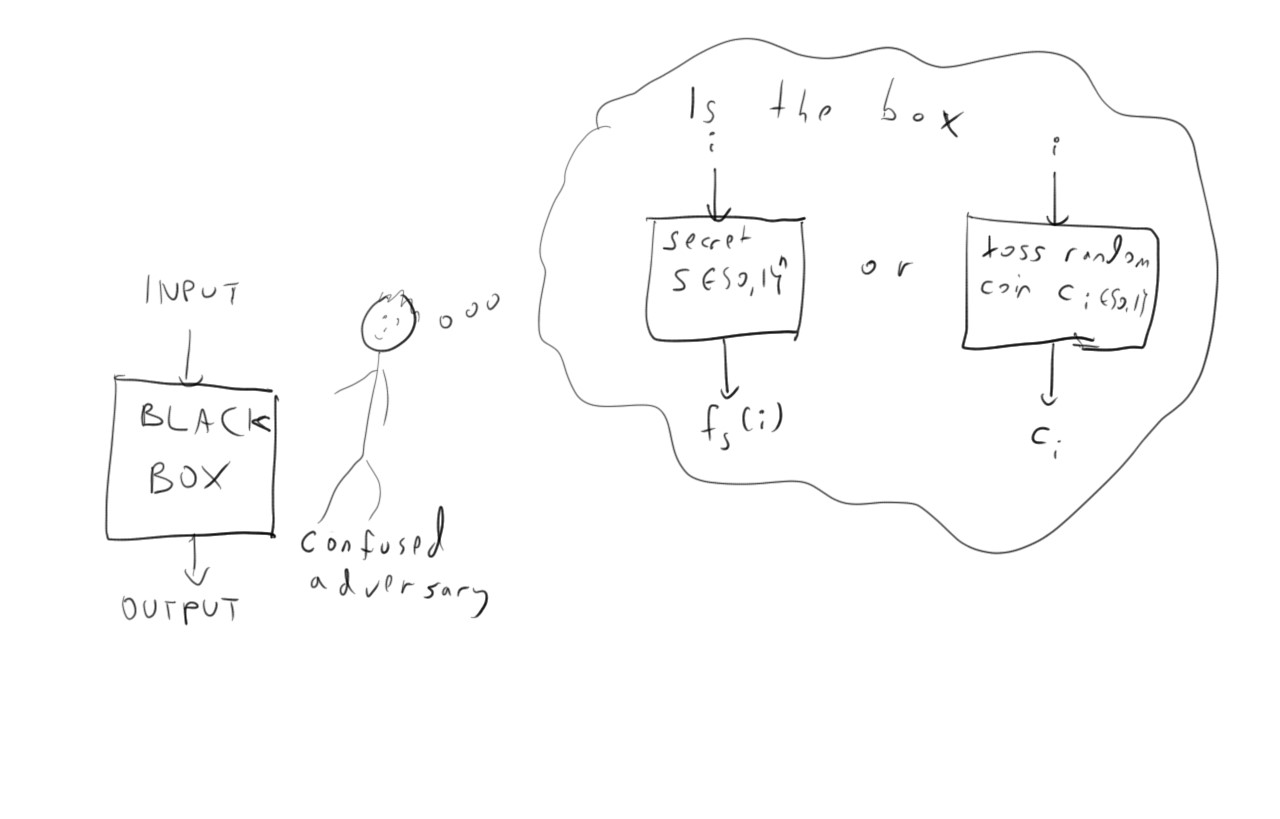 INPUT
BLACK
BOX
OUTPUT
confused
adversary
Is the box
i
secret
s ∈ {0,1}ⁿ
f_s(i)
or
i
toss random
coin c_i ∈ {0,1}
c_i